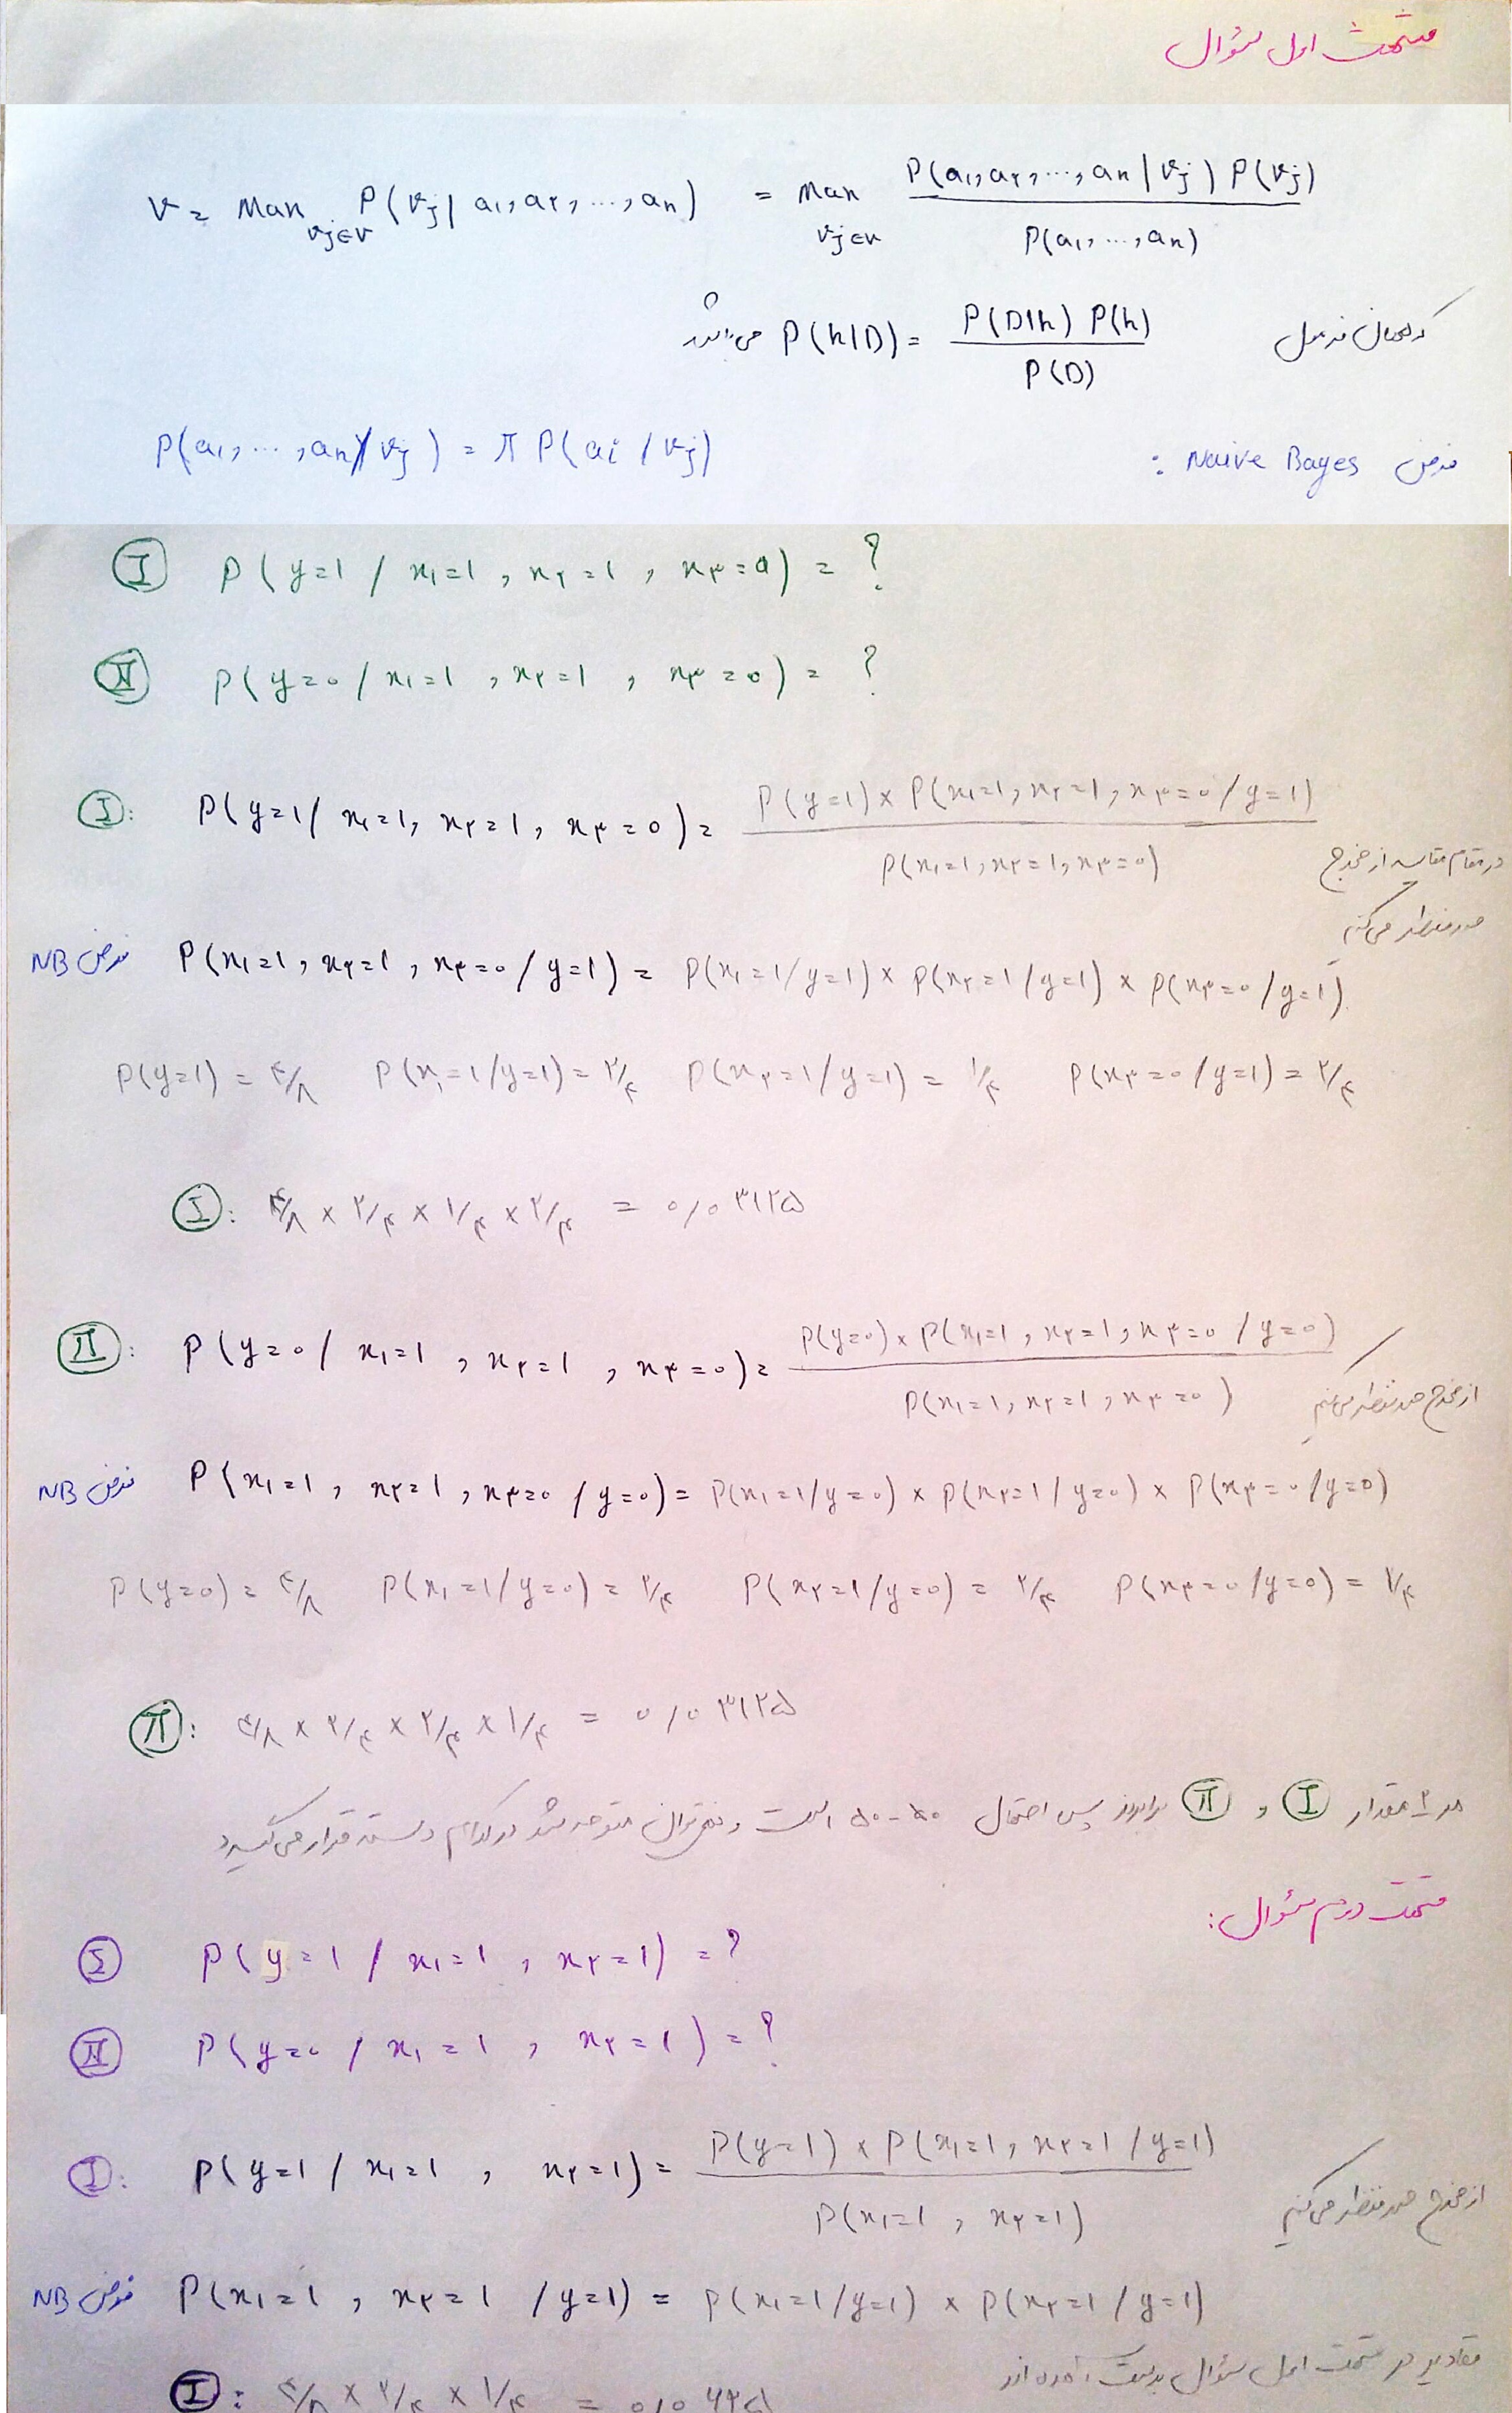 قسمت اول سؤال
v = Max vj∈v P(vj | a۱, a۲, ..., an) = Max vj∈v P(a۱, a۲, ..., an | vj) P(vj) / P(a۱, ..., an)
که همان فرمول P(h|D) = P(D|h) P(h) / P(D) می‌باشد
فرض Naive Bayes : P(a۱, ..., an | vj) = π P(ai / vj)
I P(y=1 / x۱=1, x۲=1, x۳=0) = ?
II P(y=0 / x۱=1, x۲=1, x۳=0) = ?
I: P(y=1 / x۱=1, x۲=1, x۳=0) = P(y=1) × P(x۱=1, x۲=1, x۳=0 / y=1) / P(x۱=1, x۲=1, x۳=0)
در مقام مقایسه از مخرج
صرفنظر می‌کنیم
فرض NB P(x۱=1, x۲=1, x۳=0 / y=1) = P(x۱=1 / y=1) × P(x۲=1 / y=1) × P(x۳=0 / y=1)
P(y=1) = ۴/۸ P(x۱=1 / y=1) = ۲/۴ P(x۲=1 / y=1) = ۱/۴ P(x۳=0 / y=1) = ۲/۴
I: ۴/۸ × ۲/۴ × ۱/۴ × ۲/۴ = ۰/۰۳۱۲۵
II: P(y=0 / x۱=1, x۲=1, x۳=0) = P(y=0) × P(x۱=1, x۲=1, x۳=0 / y=0) / P(x۱=1, x۲=1, x۳=0)
از مخرج صرفنظر می‌کنیم
فرض NB P(x۱=1, x۲=1, x۳=0 / y=0) = P(x۱=1 / y=0) × P(x۲=1 / y=0) × P(x۳=0 / y=0)
P(y=0) = ۴/۸ P(x۱=1 / y=0) = ۲/۴ P(x۲=1 / y=0) = ۲/۴ P(x۳=0 / y=0) = ۱/۴
II: ۴/۸ × ۲/۴ × ۲/۴ × ۱/۴ = ۰/۰۳۱۲۵
هر ۲ مقدار I و II برابرند پس احتمال ۵۰-۵۰ است و نمی‌توان متوجه شد در کدام دسته قرار می‌گیرد
قسمت دوم سؤال:
I P(y=1 / x۱=1, x۲=1) = ?
II P(y=0 / x۱=1, x۲=1) = ?
I: P(y=1 / x۱=1, x۲=1) = P(y=1) × P(x۱=1, x۲=1 / y=1) / P(x۱=1, x۲=1)
از مخرج صرفنظر می‌کنیم
فرض NB P(x۱=1, x۲=1 / y=1) = P(x۱=1 / y=1) × P(x۲=1 / y=1)
مقادیر در قسمت اول سؤال بدست آمده‌اند
I: ۴/۸ × ۲/۴ × ۱/۴ = ۰/۰۶۲۵